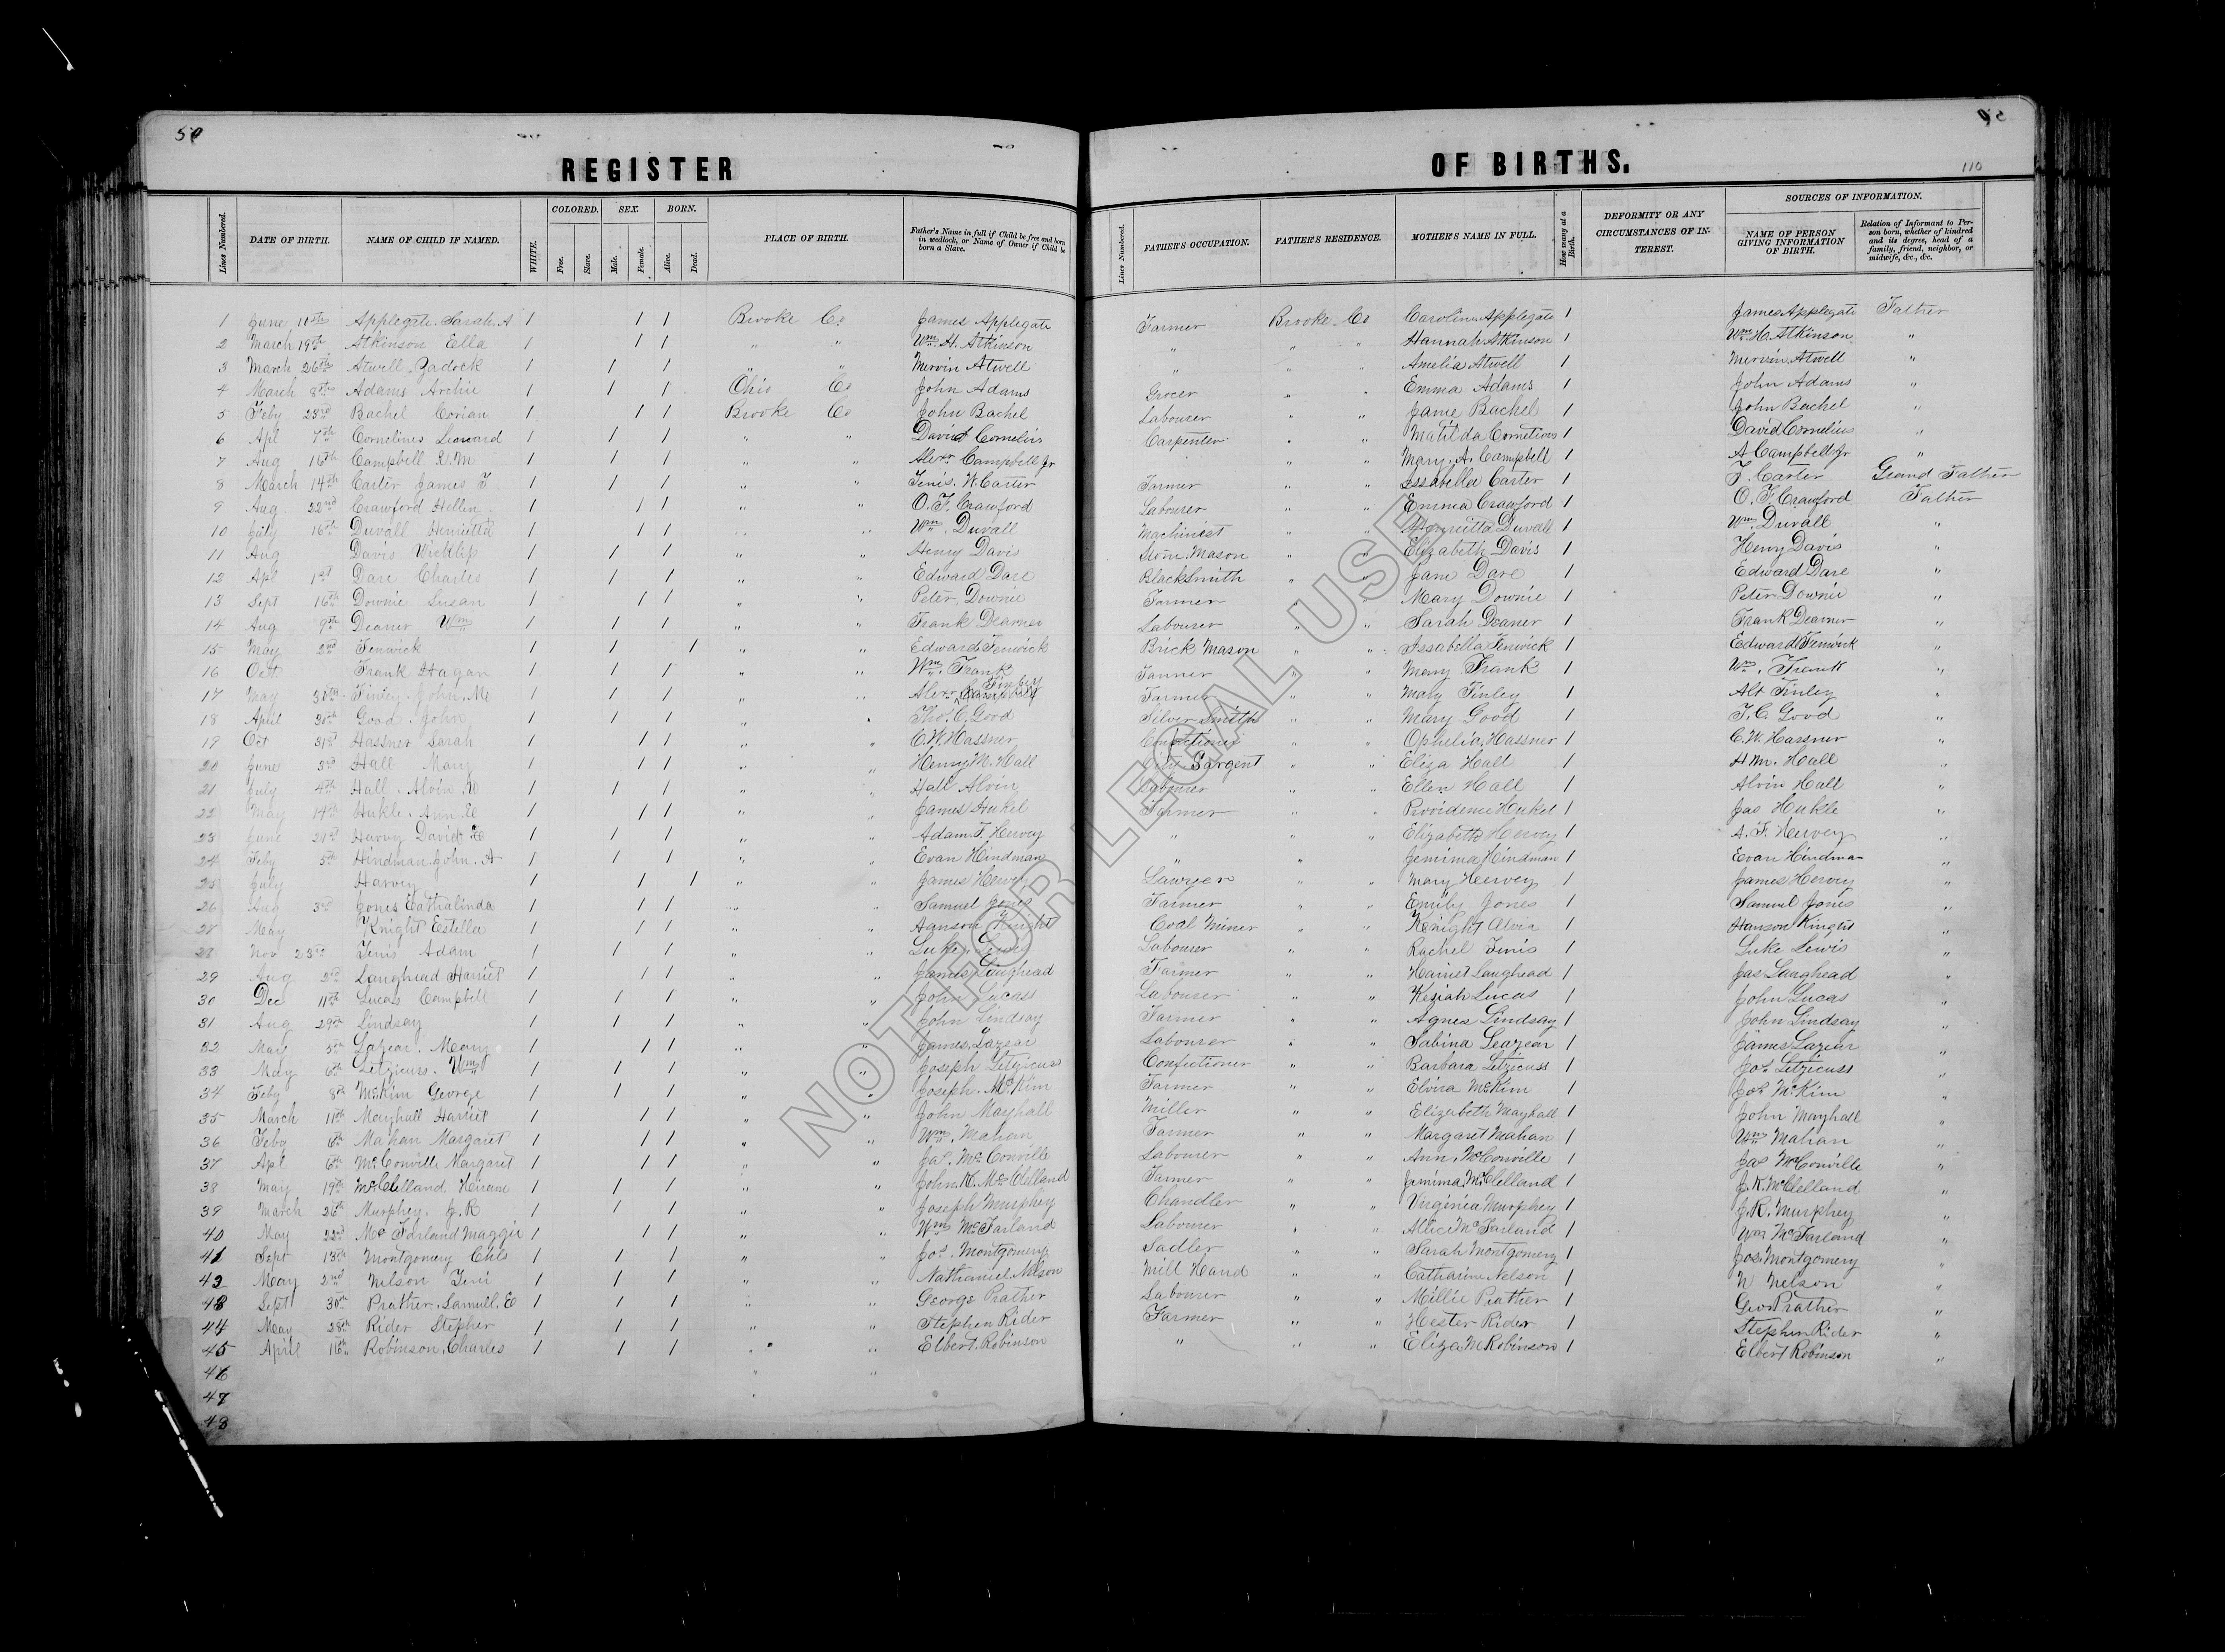 50
REGISTER OF BIRTHS.
110
Lines Numbered. DATE OF BIRTH. NAME OF CHILD IF NAMED. WHITE. COLORED. Free. Slave. SEX. Male. Female. BORN. Alive. Dead. PLACE OF BIRTH. Father's Name in full if Child be free and born in wedlock, or Name of Owner if Child be born a Slave. Lines Numbered. FATHER'S OCCUPATION. FATHER'S RESIDENCE. MOTHER'S NAME IN FULL. How many at a Birth. DEFORMITY OR ANY CIRCUMSTANCES OF INTEREST. SOURCES OF INFORMATION. NAME OF PERSON GIVING INFORMATION OF BIRTH. Relation of Informant to Person born, whether of kindred and its degree, head of a family, friend, neighbor, or midwife, &c., &c.
1 June 10th Applegate Sarah A 1 1 1 Brooke Co James Applegate Farmer Brooke Co Caroline Applegate 1 James Applegate Father
2 March 19th Atkinson Ella 1 1 1 " " Wm. H. Atkinson " " " Hannah Atkinson 1 Wm. H. Atkinson "
3 March 26th Atwell Zadock 1 1 1 " " Mervin Atwell " " " Amelia Atwell 1 Mervin Atwell "
4 March 8th Adams Archie 1 1 1 Ohio Co John Adams Grocer " " Emma Adams 1 John Adams "
5 Feby 23rd Bachel Corian 1 1 1 Brooke Co John Bachel Labourer " " Jane Bachel 1 John Bachel "
6 Apl 7th Cornelius Leonard 1 1 1 " " David Cornelius Carpenter " " Matilda Cornelious 1 David Cornelius "
7 Aug 16th Campbell R. M 1 1 1 " " Alexr Campbell Jr " " Mary. A. Campbell 1 A Campbell Jr "
8 March 14th Carter James F 1 1 1 " W. Carter Farmer " " Issabella Carter 1 Carter Grand Father
9 Aug 22nd Crawford Hellen 1 1 1 " " O. F. Crawford Labourer " " Emma Crawford 1 O. F. Crawford Father
10 July 16th Duvall Henrietta 1 1 1 " " Wm. Duvall Machinest " " Henrietta Duvall 1 Wm. Duvall "
11 Aug Davis Wicklif 1 1 1 " " Henry Davis Stone Mason " " Elizabeth Davis 1 Henry Davis "
12 Apl 1st Dare Charles 1 1 1 " " Edward Dare BlackSmith " " Jane Dare 1 Edward Dare "
13 Sept 16th Downie Susan 1 1 1 " " Peter Downie Farmer " " Mary Downie 1 Peter Downie "
14 Aug 9th Deaner Wm 1 1 1 " " Frank Dearner Labourer " " Sarah Deaner 1 Frank Dearner "
15 May 2nd Fenwick 1 1 1 " " Edward Fenwick Brick Mason " " Issabella Fenwick 1 Edward Fenwick "
16 Oct Frank Hagan 1 1 1 " " Wm. Frank Tanner " " Mary Frank 1 Wm. Frank "
17 May 30th Finley John Mc 1 1 1 " " Alexr Campbell Finley Farmer " " Mary Finley 1 Alx Finley "
18 April 30th Good John 1 1 1 " " Thos. C. Good Silver Smith " " Mary Good 1 T. C. Good "
19 Oct 31st Hassner Sarah 1 1 1 " " C. W. Hassner Confectioner " " Ophelia Hassner 1 C. W. Hassner "
20 June 3rd Hall Mary 1 1 1 " " Henry M. Hall City Sargent " " Eliza Hall 1 H M. Hall "
21 July 4th Hall Alvin W 1 1 1 " " Hall Alvin Labourer " " Ellen Hall 1 Alvin Hall "
22 May 14th Hukle Ann E 1 1 1 " " James Hukel Farmer " Providence Hukel 1 Jas Hukle "
23 June 21st Harvy David 1 1 1 " " Adam F. Hervey " " " Elizabeth Hervey 1 A. F. Hervey "
24 Feby 5th Hindman John. A 1 1 1 " " Evan Hindman " " Jemima Hindman 1 Evan Hindman "
25 July Harvey 1 1 1 " " James Hervey Lawyer " " Mary Hervey 1 James Hervey "
26 Aug 3rd Jones Cathalinda 1 1 1 " " Samuel Jones Farmer " " Emily Jones 1 Samuel Jones "
28 May Knight Estella 1 1 1 " " Hanson Knight Coal Miner " " Knight Alvia 1 Hanson Knight "
28 Nov 23rd Adam 1 1 1 " " Luke Lewis Labourer " " Rachel 1 Luke Lewis "
29 Aug 2nd Laughead Harriet 1 1 1 " " James Laughead Farmer " " Harriet Laughead 1 Jas Laughead "
30 Dec 11th Lucas Campbell 1 1 1 " " John Lucass Labourer " " Keziah Lucas 1 John Lucas "
31 Aug 29th Lindsay 1 1 1 " " John Lindsay Farmer " " Agnes Lindsay 1 John Lindsay "
32 May 5th Lazear Mary 1 1 1 " " James Lazear Labourer " " Sabina Leazear 1 James Lazear "
33 May 6th Letzicuss. Wm 1 1 1 " " Joseph Letzicuss Confectioner " " Barbara Letzicuss 1 Jos Letzicuss "
34 Feby 8th McKim George 1 1 1 " " Joseph McKim Farmer " " Elvira McKim 1 Jos McKim "
35 March 11th Mayhall Harriet 1 1 1 " " John Mayhall Miller " " Elizabeth Mayhall 1 John Mayhall "
36 Feby 6th Mahan Margaret 1 1 1 " " Wm. Mahan Farmer " " Margaret Mahan 1 Wm Mahan "
37 Apl 6th McConville Margaret 1 1 1 " " Jas. McConville Labourer " " Ann McConville 1 Jas McConville "
38 May 19th McClelland Hiram 1 1 1 " " John. K. McClelland Farmer " " Jemima McClelland 1 J. K. McClelland "
39 March 26th Murphey. J. R 1 1 1 " " Joseph Murphey Chandler " " Virginia Murphey 1 J. R. Murphey "
40 May 22nd McFarland Maggie 1 1 1 " " Wm McFarland Labourer " " Alice McFarland 1 Wm McFarland "
41 Sept 13th Montgomery Chls 1 1 1 " " Jos. Montgomery Sadler " " Sarah Montgomery 1 Jos. Montgomery "
42 May 2nd Nelson 1 1 1 " " Nathaniel Nelson Mill Hand " " Catharine Nelson 1 N Nelson "
43 Sept 30th Prather Samuell. E 1 1 1 " " George Prather Labourer " " Millie Prather 1 Geo Prather "
44 May 28th Rider Stepher 1 1 1 " " Stephen Rider Farmer " " Hester Rider 1 Stephen Rider "
45 April 16th Robinson Charles 1 1 1 " " Elbert Robinson " " " Eliza M Robinson 1 Elbert Robinson "
46 " "
47
48
NOT FOR LEGAL USE